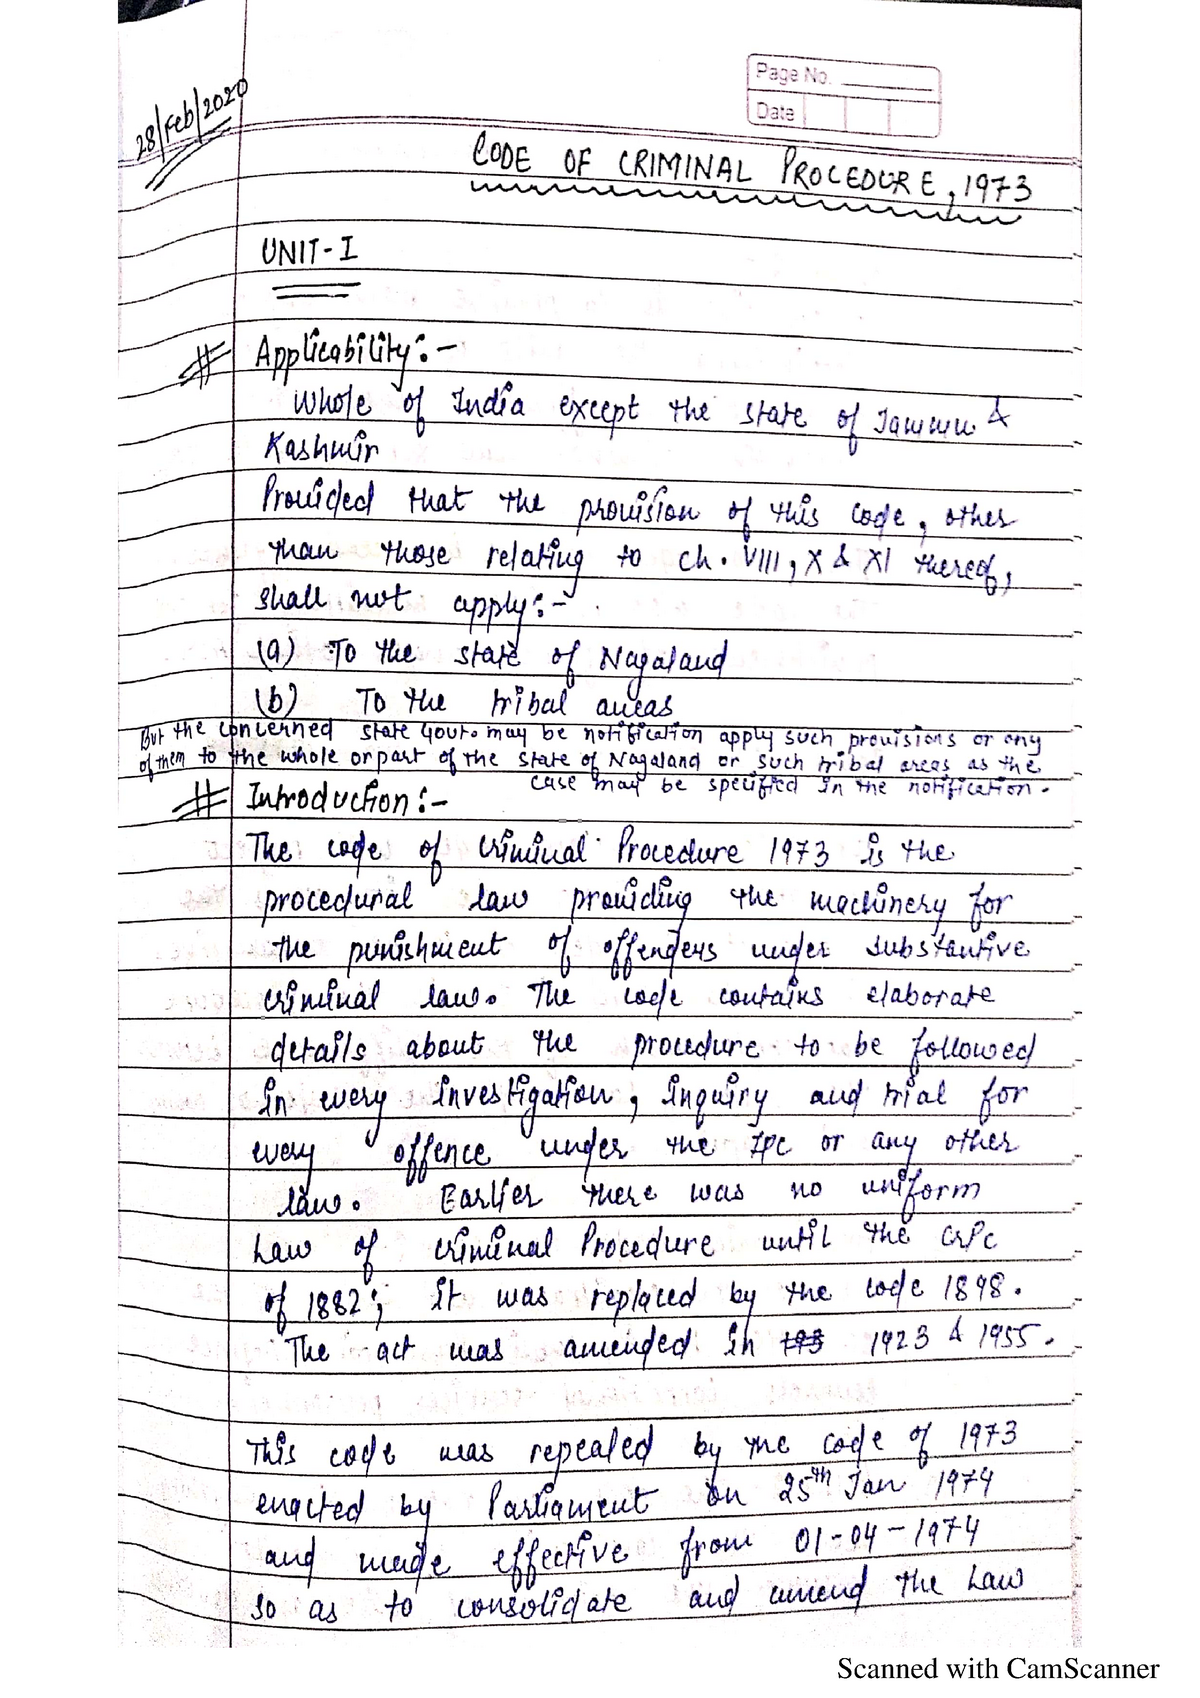 Page No.
Date
28/Feb/2020
CODE OF CRIMINAL PROCEDURE, 1973
UNIT-I
# Applicability:-
Whole of India except the state of Jammu &
Kashmir
Provided that the provision of this code, other
than those relating to ch. VIII, X & XI thereof,
shall not apply:-
(a) To the state of Nagaland
(b) To the tribal areas
But the concerned state Govt. may be notification apply such provisions or any
of them to the whole or part of the state of Nagaland or such tribal areas as the
case may be specified in the notification.
# Introduction:-
The code of Criminal Procedure 1973 is the
procedural law providing the machinery for
the punishment of offenders under substantive
criminal law. The code contains elaborate
details about the procedure to be followed
in every investigation, inquiry and trial for
every offence under the IPC or any other
law. Earlier there was no uniform
Law of criminal Procedure until the CrPc
of 1882; it was replaced by the code 1898.
The act was amended in 1923 & 1955.
This code was repealed by the code of 1973
enacted by Parliament on 25th Jan 1974
and made effective from 01-04-1974
so as to consolidate and amend the Law
Scanned with CamScanner